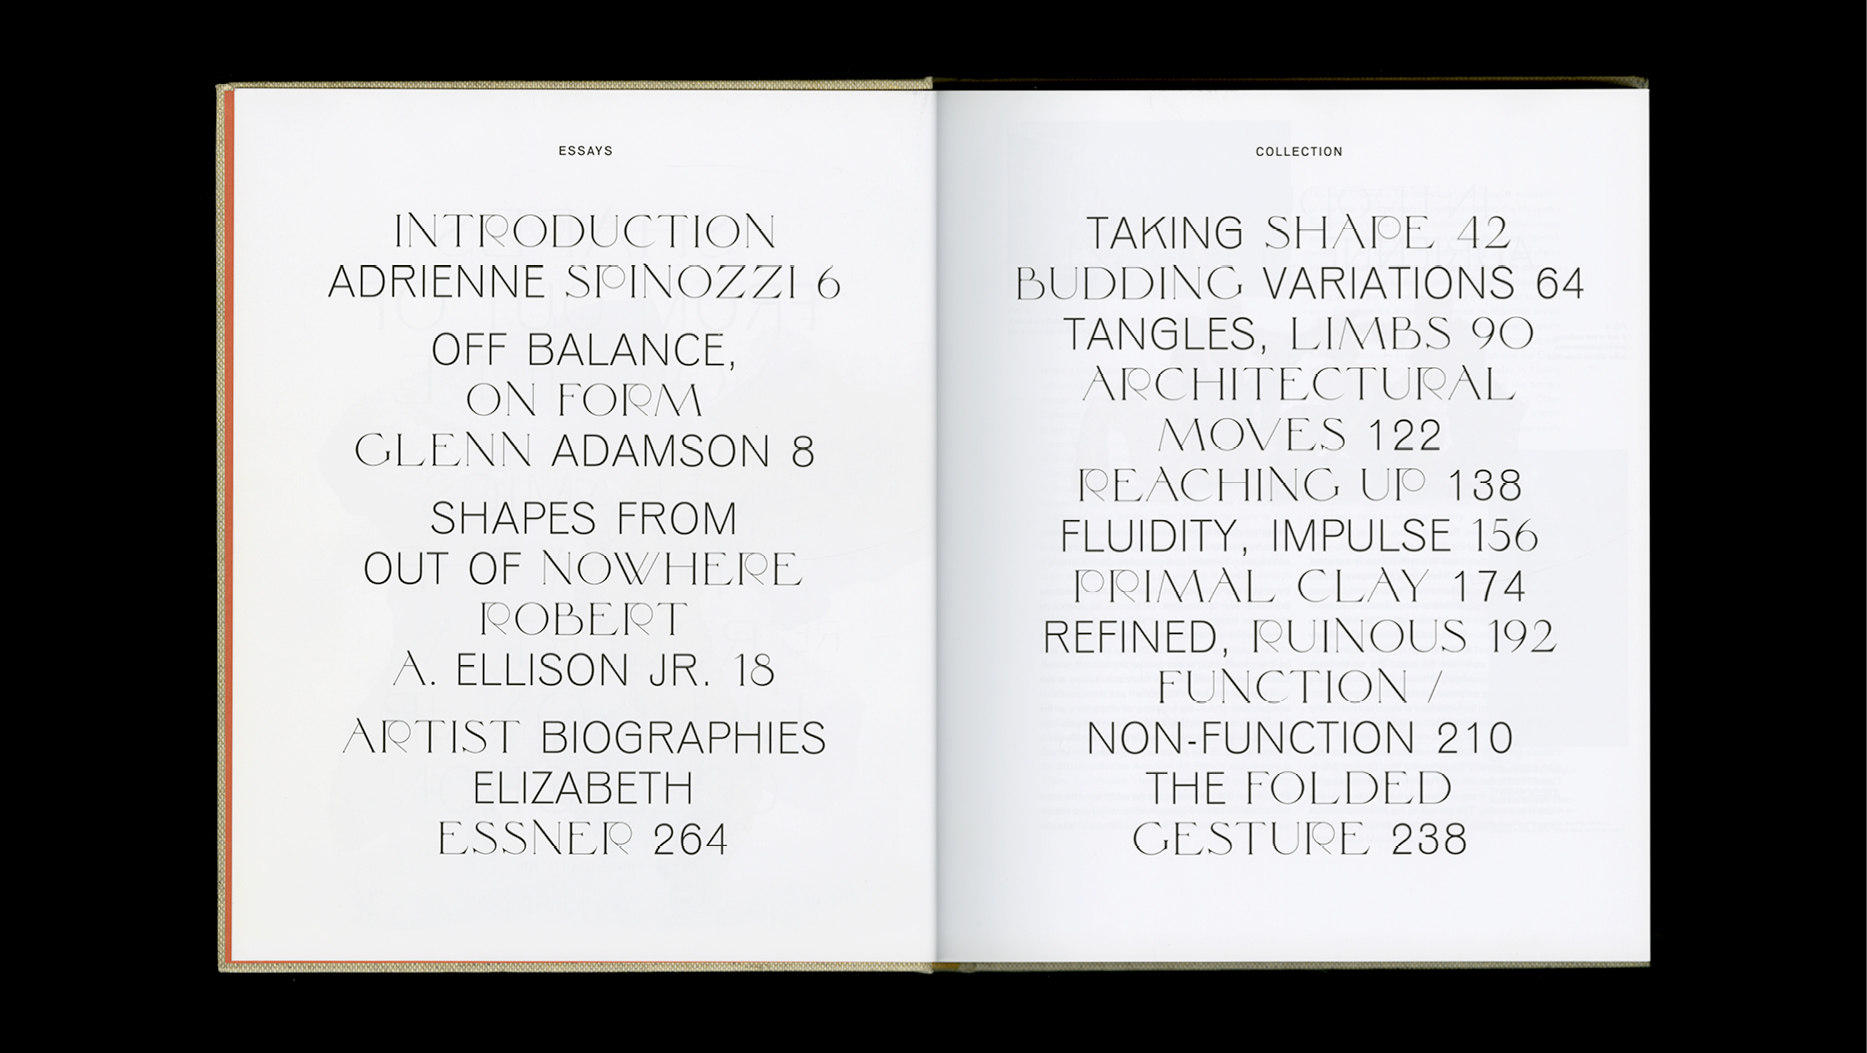 ESSAYS
INTRODUCTION
ADRIENNE SPINOZZI 6
OFF BALANCE,
ON FORM
GLENN ADAMSON 8
SHAPES FROM
OUT OF NOWHERE
ROBERT
A. ELLISON JR. 18
ARTIST BIOGRAPHIES
ELIZABETH
ESSNER 264
COLLECTION
TAKING SHAPE 42
BUDDING VARIATIONS 64
TANGLES, LIMBS 90
ARCHITECTURAL
MOVES 122
REACHING UP 138
FLUIDITY, IMPULSE 156
PRIMAL CLAY 174
REFINED, RUINOUS 192
FUNCTION /
NON-FUNCTION 210
THE FOLDED
GESTURE 238